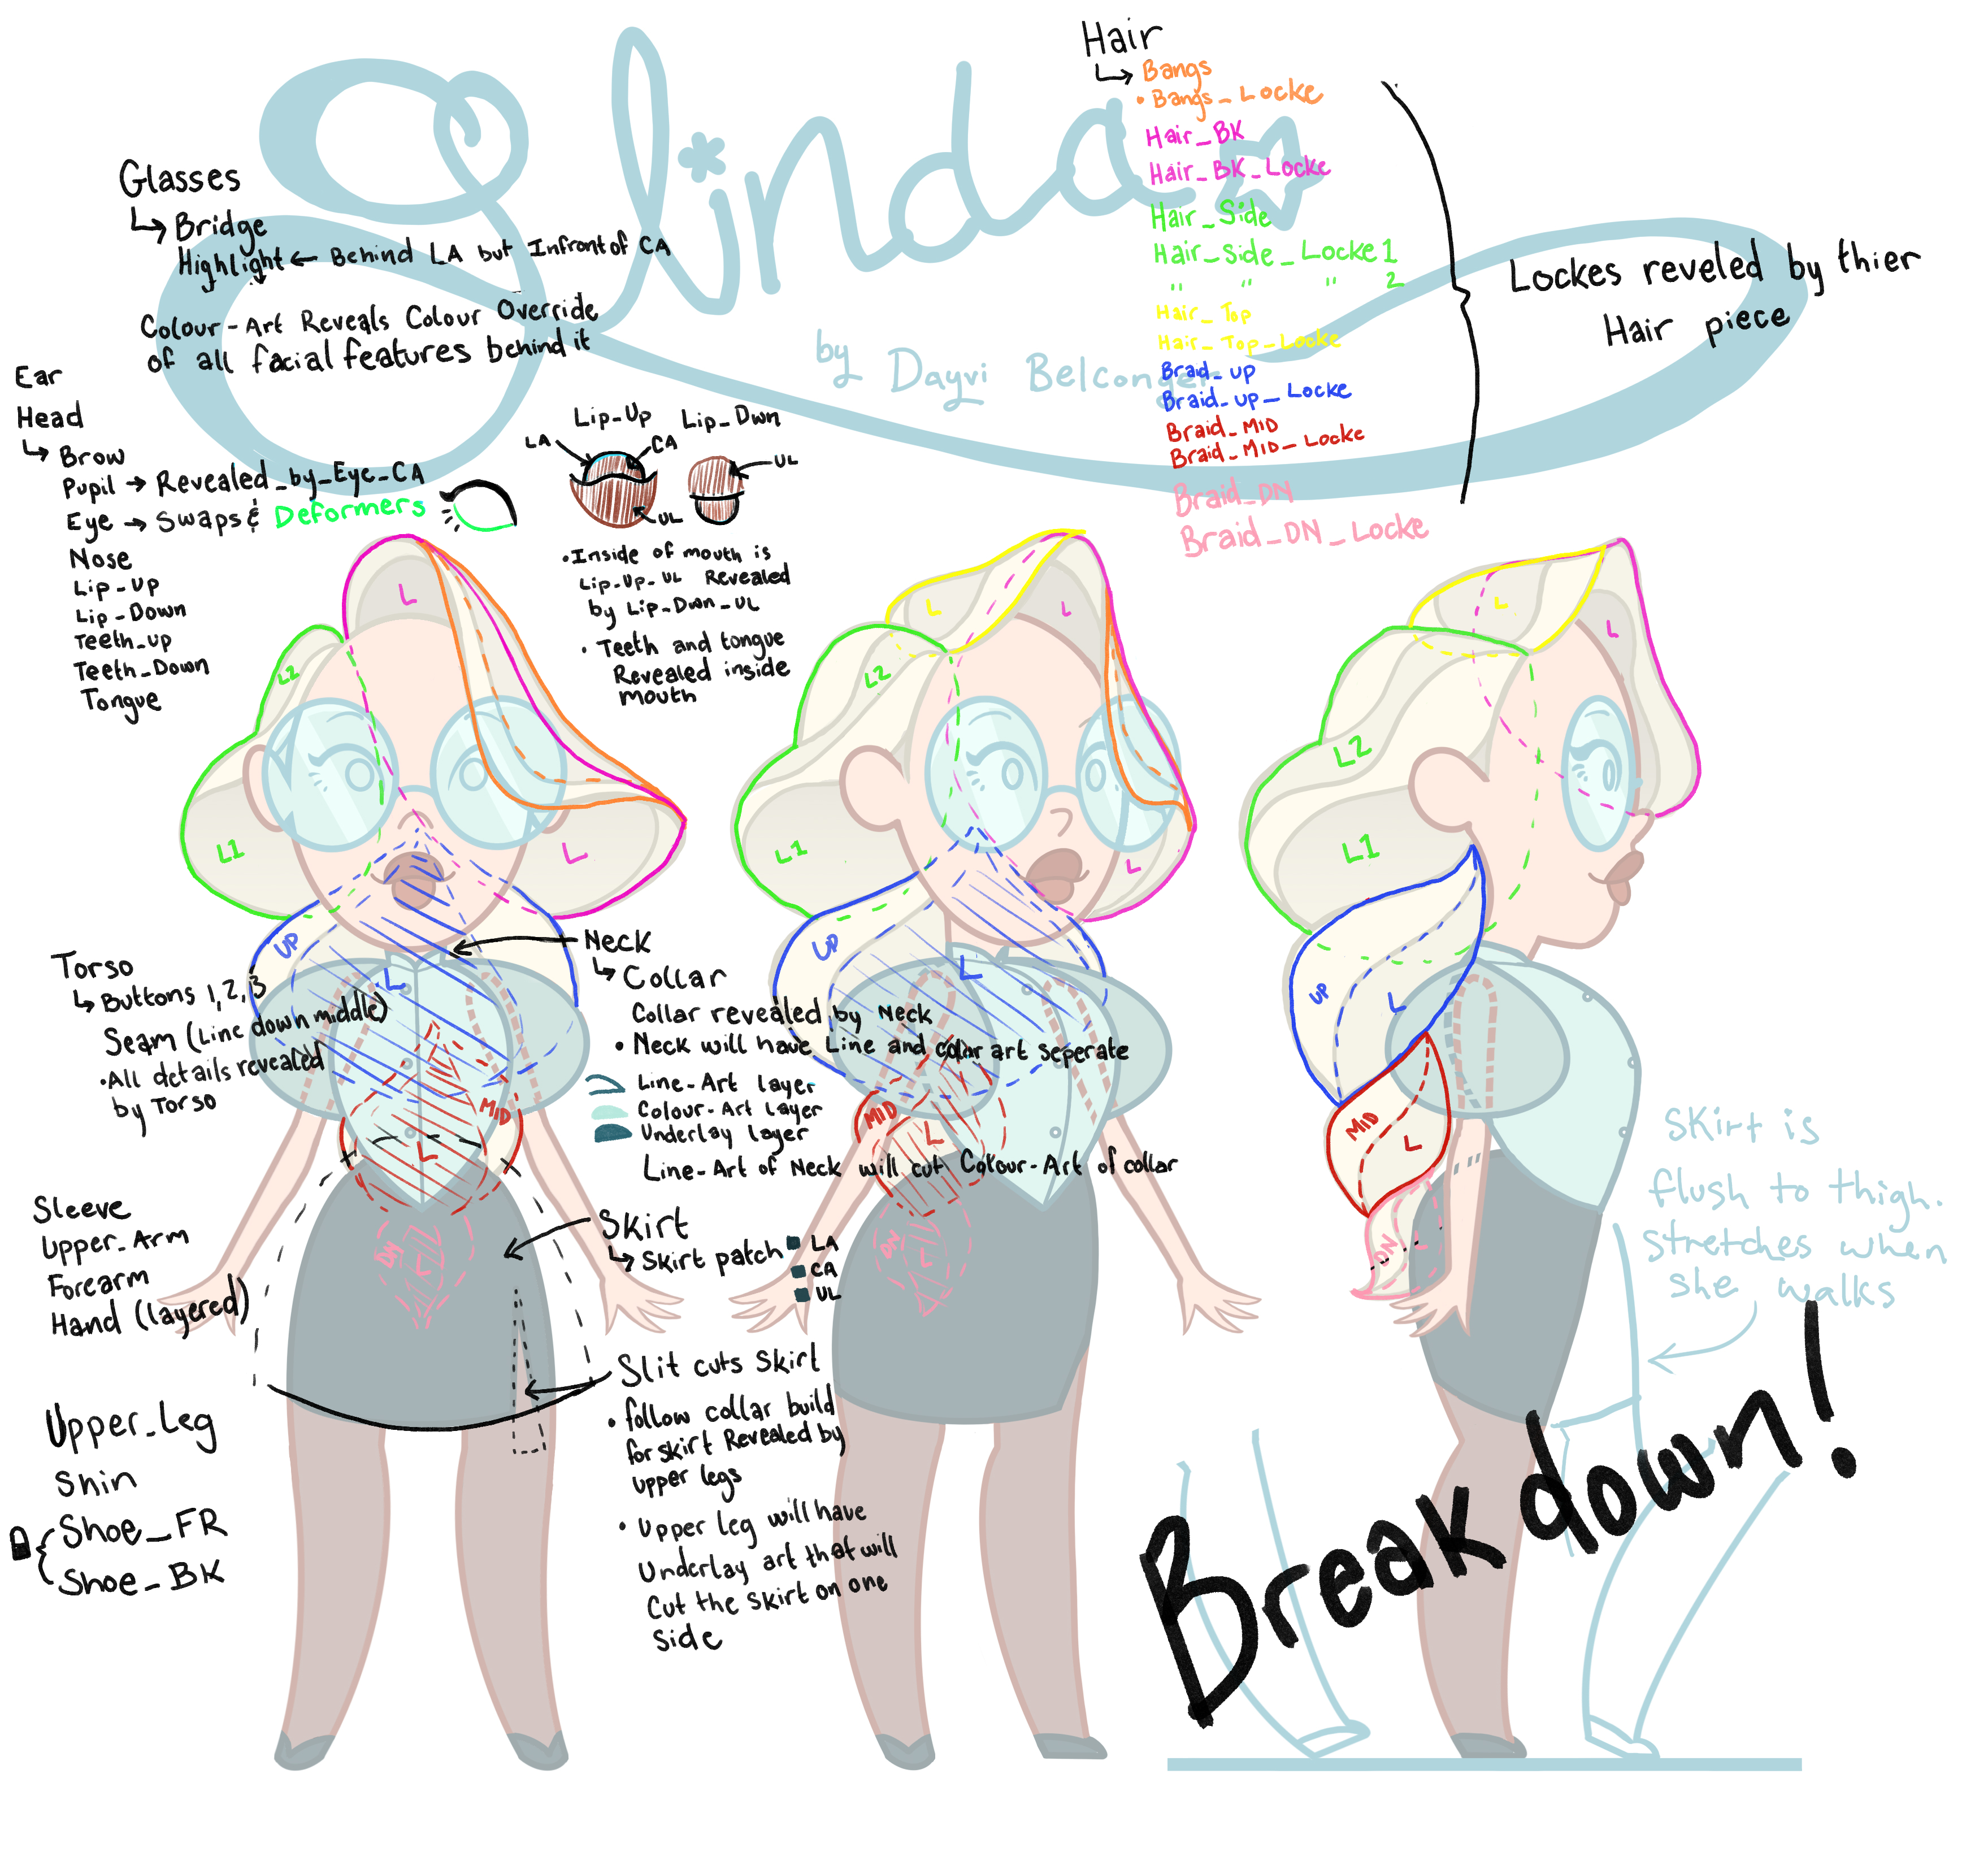 Slinda
by Dayvi Belconger
Hair
Bangs
• Bangs_Locke
Hair_BK
Hair_BK_Locke
Hair_Side
Hair_side_Locke 1
" " " 2
Hair_Top
Hair_Top_Locke
Braid_up
Braid_up_Locke
Braid_MID
Braid_MID_Locke
Braid_DN
Braid_DN_Locke
Lockes reveled by thier
Hair piece
Glasses
Bridge
Highlight ← Behind LA but Infront of CA
Colour-Art Reveals Colour Override
of all facial features behind it
Ear
Head
Brow
Pupil → Revealed_by_Eye_CA
Eye → Swaps & Deformers
Nose
Lip_Up
Lip_Down
Teeth_up
Teeth_Down
Tongue
Lip_Up
Lip_Dwn
LA
CA
UL
UL
• Inside of mouth is
Lip_Up_UL Revealed
by Lip_Dwn_UL
• Teeth and tongue
Revealed inside
mouth
L
L2
L1
L
UP
L
MID
L
DN
L
L
L
L2
L1
L
UP
L
MID
L
DN
L
L
L
L2
L1
UP
L
MID
L
DN
L
Torso
Buttons 1, 2, 3
Seam (Line down middle)
• All details revealed
by Torso
Neck
Collar
Collar revealed by Neck
• Neck will have Line and color art seperate
Line-Art layer
Colour-Art Layer
Underlay layer
Line-Art of Neck will cut Colour-Art of collar
Sleeve
Upper_Arm
Forearm
Hand (layered)
Skirt
Skirt patch
LA
CA
UL
Slit cuts skirt
• follow collar build
for skirt Revealed by
upper legs
• Upper leg will have
Underlay art that will
Cut the skirt on one
side
Upper_Leg
Shin
Shoe_FR
Shoe_BK
Skirt is
flush to thigh.
stretches when
she walks
Break down!